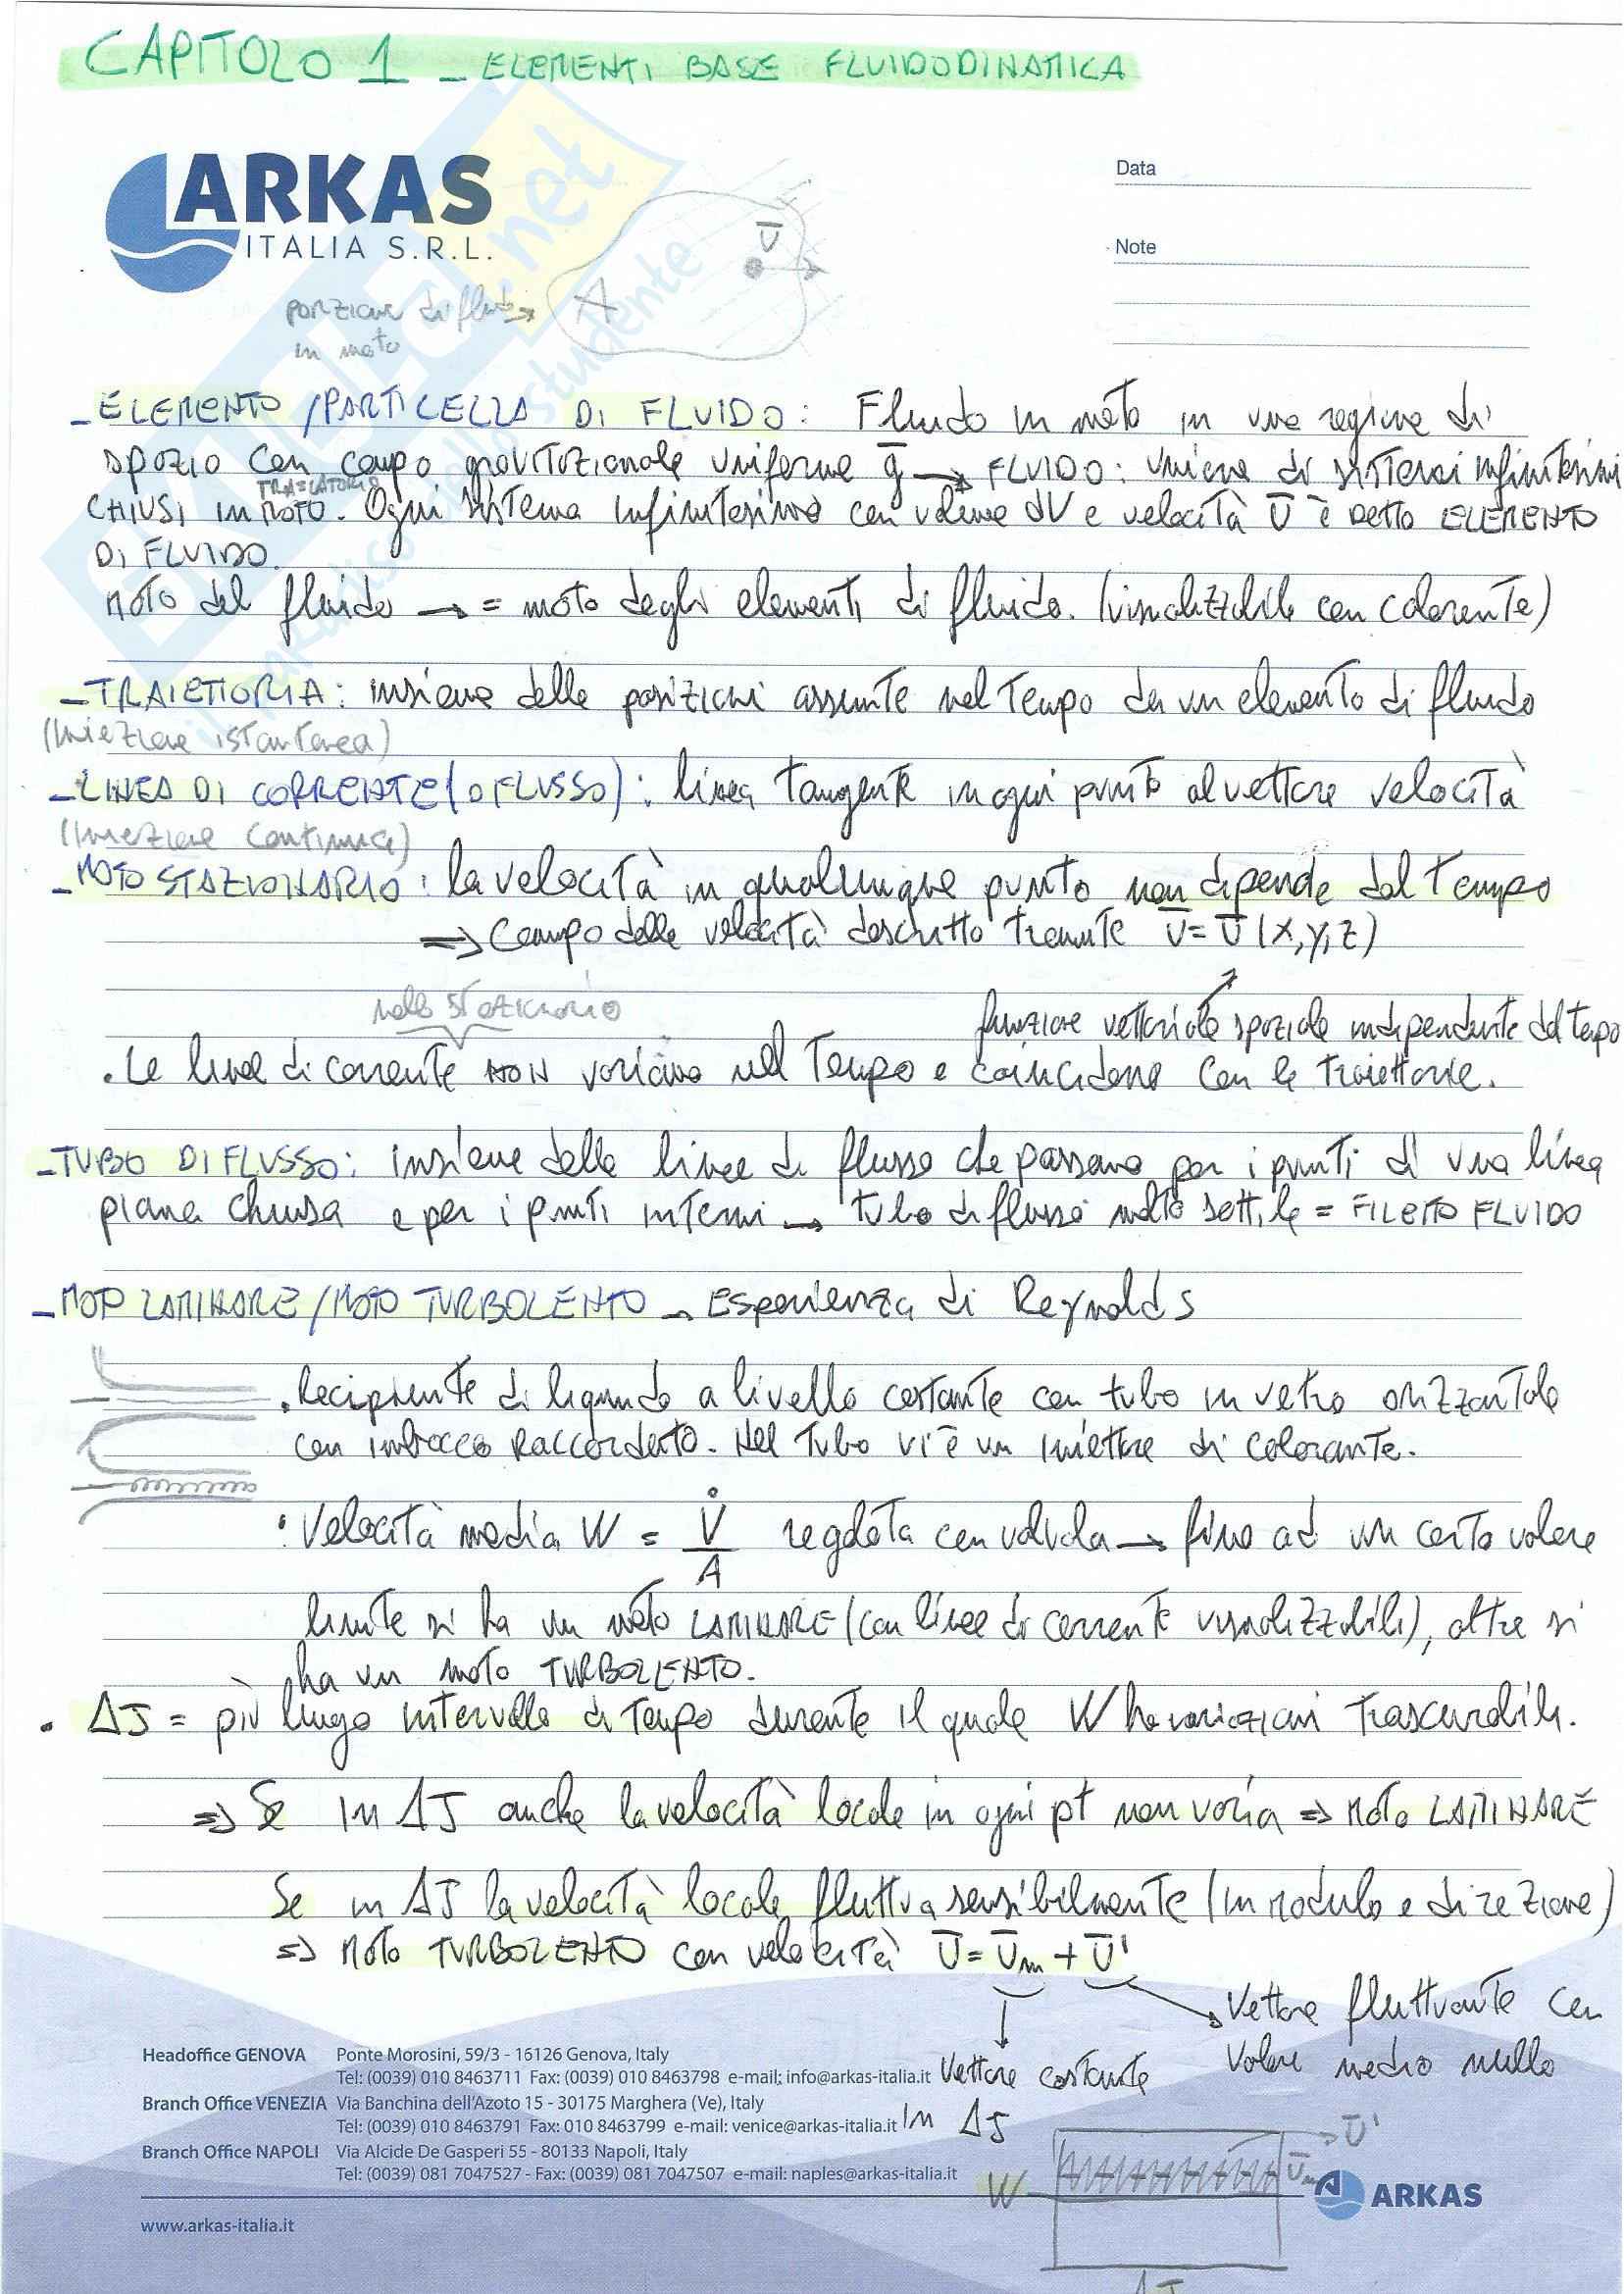 CAPITOLO 1 - ELEMENTI BASE FLUIDODINAMICA
ARKAS
ITALIA S.R.L.
Data
Note
Ū
A
porzione di fluido →
in moto
- ELEMENTO / PARTICELLA DI FLUIDO: Fluido in moto in una regione di
spazio con campo gravitazionale uniforme g̅ → FLUIDO: unione di sistemi infinitesimi
TRASLATORIO
CHIUSI IN MOTO. Ogni sistema infinitesimo con volume dV e velocità Ū è detto ELEMENTO
DI FLUIDO.
moto del fluido → = moto degli elementi di fluido. (visualizzabile con colorante)
- TRAIETTORIA: insieme delle posizioni assunte nel tempo da un elemento di fluido
(iniezione istantanea)
- LINEA DI CORRENTE (O FLUSSO): linea tangente in ogni punto al vettore velocità
(iniezione continua)
- MOTO STAZIONARIO: la velocità in qualunque punto non dipende dal tempo
=> campo delle velocità descritto tramite Ū = Ū (x,y,z)
nello stazionario
funzione vettoriale spaziale indipendente dal tempo
. Le linee di corrente NON variano nel tempo e coincidono con le traiettorie.
- TUBO DI FLUSSO: insieme delle linee di flusso che passano per i punti di una linea
piana chiusa e per i punti interni → tubo di flusso molto sottile = FILETTO FLUIDO
- MOTO LAMINARE / MOTO TURBOLENTO → Esperienza di Reynolds
. Recipiente di liquido a livello costante con tubo in vetro orizzontale
con imbocco raccordato. Nel tubo vi è un iniettore di colorante.
. Velocità media W = V̇ / A regolata con valvola → fino ad un certo valore
limite si ha un moto LAMINARE (con linee di corrente visualizzabili), oltre si
ha un moto TURBOLENTO.
. ΔJ = più lungo intervallo di tempo durante il quale W ha variazioni trascurabili.
=> Se in ΔJ anche la velocità locale in ogni pt non varia => moto LAMINARE
Se in ΔJ la velocità locale fluttua sensibilmente (in modulo e direzione)
=> moto TURBOLENTO con velocità Ū = Ūm + Ū'
Vettore fluttuante con
valore medio nullo
Vettore costante
in ΔJ
Headoffice GENOVA Ponte Morosini, 59/3 - 16126 Genova, Italy
Tel: (0039) 010 8463711 Fax: (0039) 010 8463798 e-mail: info@arkas-italia.it
Branch Office VENEZIA Via Banchina dell'Azoto 15 - 30175 Marghera (Ve), Italy
Tel: (0039) 010 8463791 Fax: 010 8463799 e-mail: venice@arkas-italia.it
Branch Office NAPOLI Via Alcide De Gasperi 55 - 80133 Napoli, Italy
Tel: (0039) 081 7047527 - Fax: (0039) 081 7047507 e-mail: naples@arkas-italia.it
Ū'
Ūm
W
ARKAS
www.arkas-italia.it
ΔJ